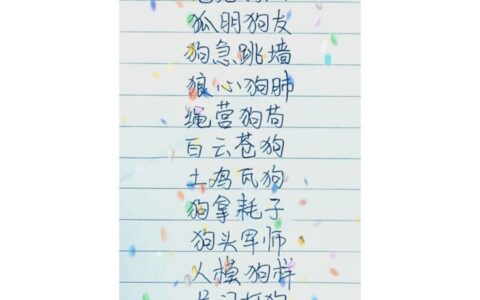 狐朋狗友
狗急跳墙
狼心狗肺
绳营狗苟
白云苍狗
土鸡瓦狗
狗拿耗子
狗头军师
人模狗样